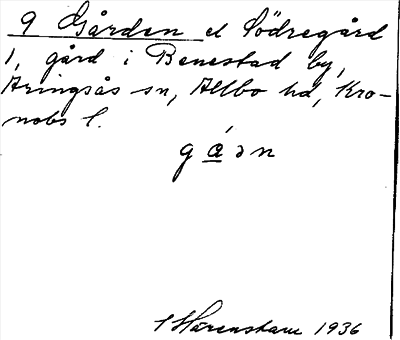 9 Gården el Södregård
1, gård i Benestad by,
Aringsås sn, Allbo hd, Kro-
nobs l.
gá̲ən
S Hårenstam 1936